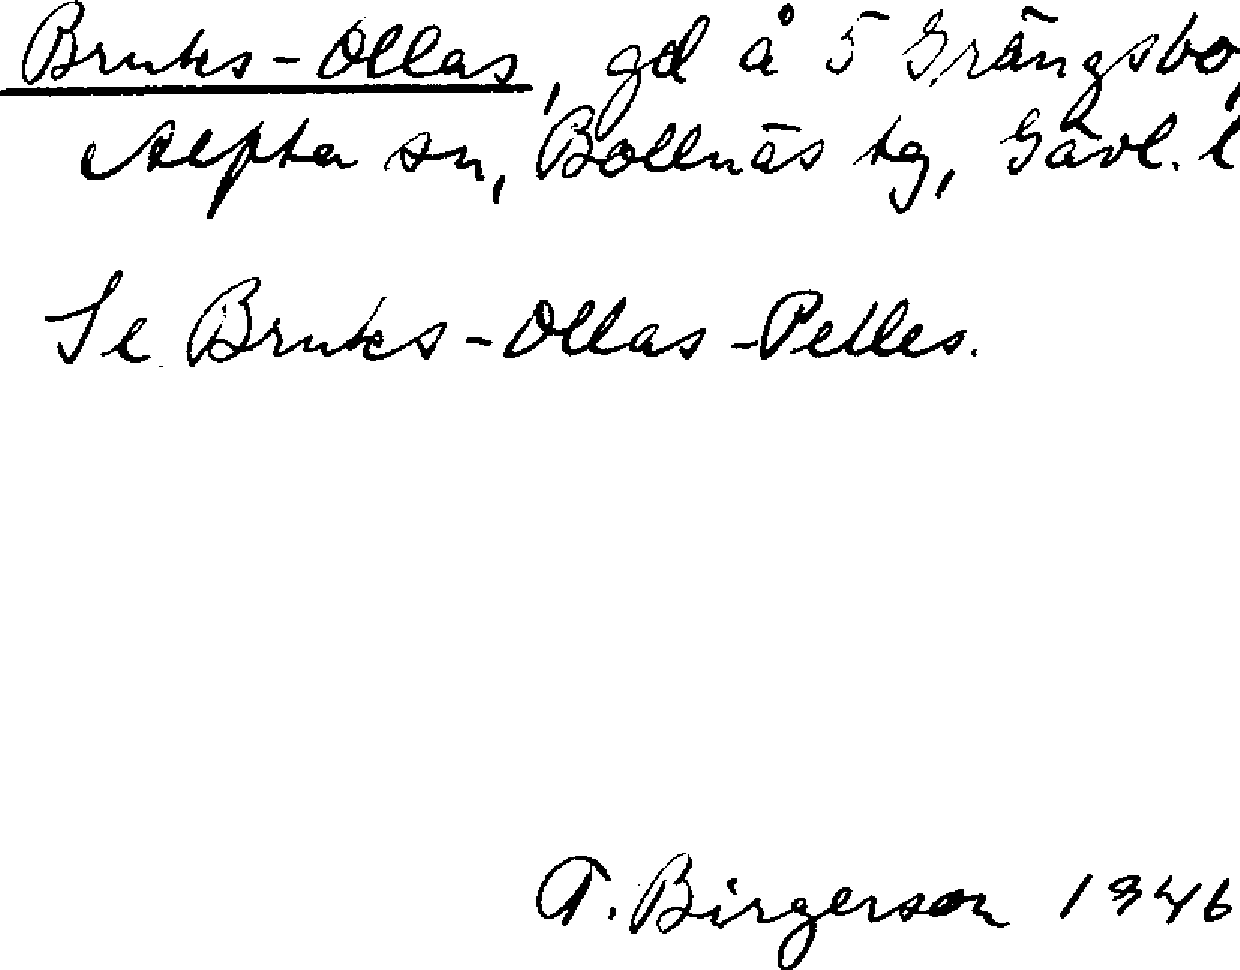 Bruks-Ollas, gd å 5 Grängsbo,
Alfta sn, Bollnäs tg, Gävl. l
Se Bruks-Ollas-Pelles.
T. Birgerson 1946